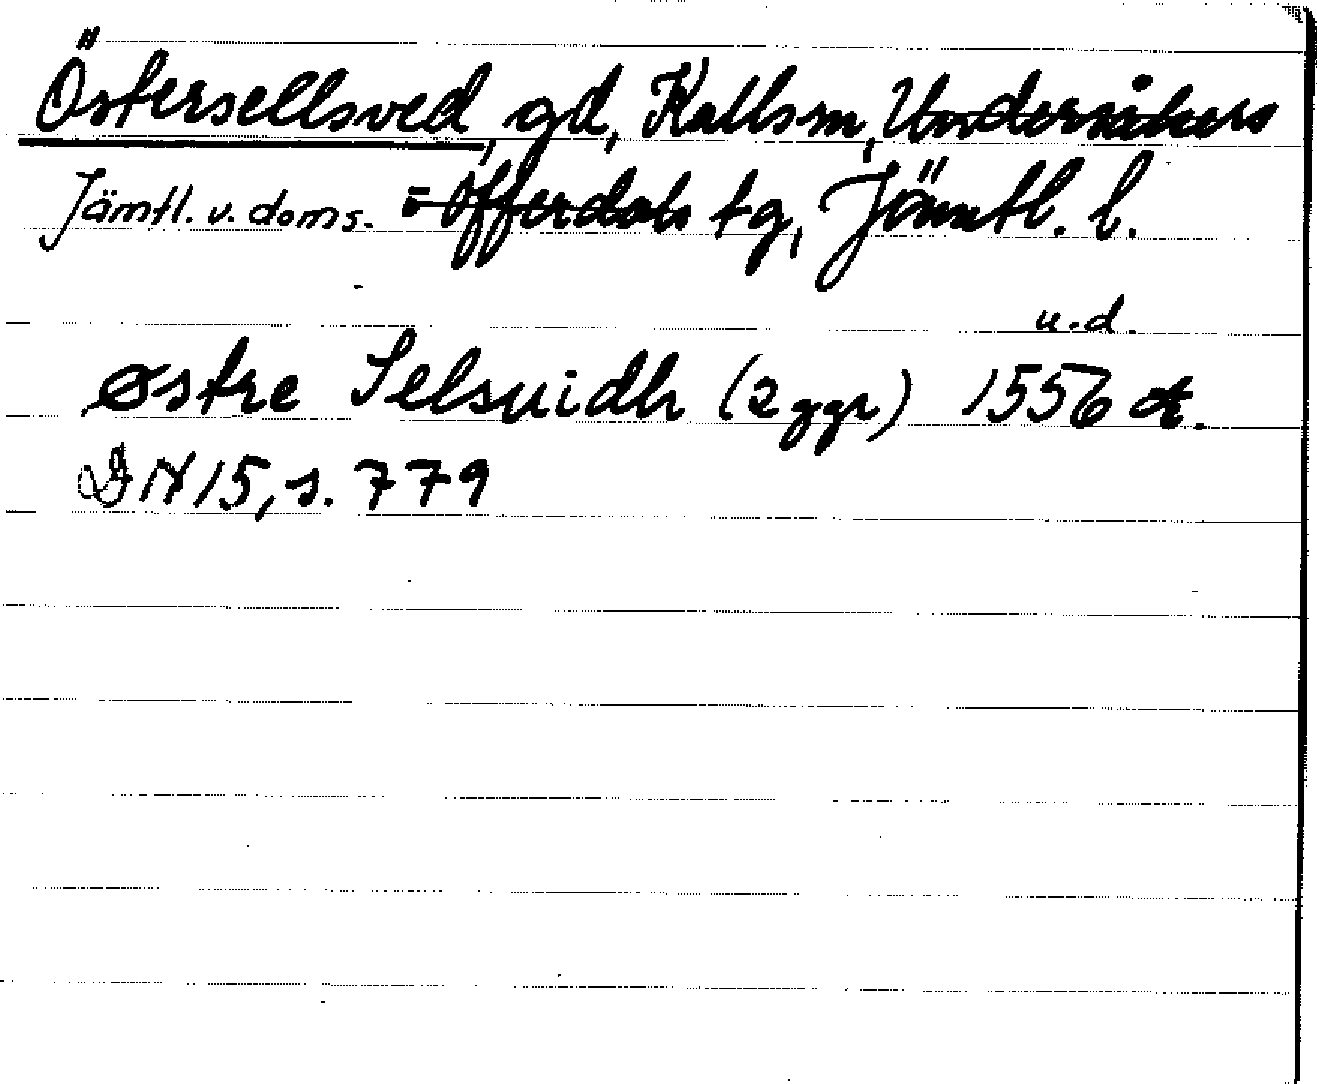 Östersellsved, gd, Kallsm, Undersåkers
Jämtl. v. doms. -Offerdals tg, Jämtl. l.
u.d.
østre Selsuidh (2 ggr) 1556 A.
DN 15, s. 779